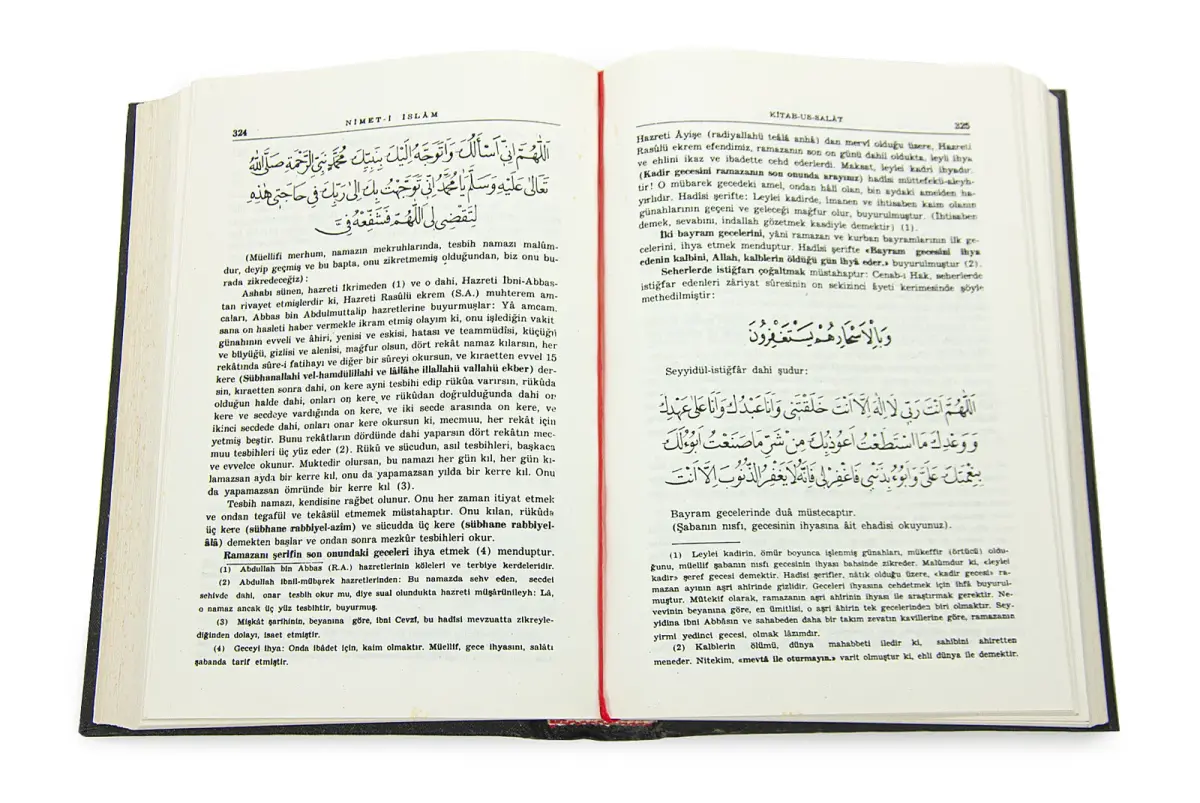 324
NİMET-İ İSLÂM
اَللّٰهُمَّ اِنّٖى اَسْأَلُكَ وَاَتَوَجَّهُ اِلَيْكَ بِنَبِيِّكَ مُحَمَّدٍ نَبِىِّ الرَّحْمَةِ صَلَّى اللّٰهُ
تَعَالٰى عَلَيْهِ وَسَلَّمَ يَا مُحَمَّدُ اِنّٖى تَوَجَّهْتُ بِكَ اِلٰى رَبِّكَ فٖى حَاجَتٖى هٰذِهٖ
لِتُقْضٰى لٖى اَللّٰهُمَّ فَشَفِّعْهُ فِىَّ
(Müellifi merhum, namazın mekruhlarında, tesbih namazı malûm-
dur, deyip geçmiş ve bu bapta, onu zikretmemiş olduğundan, biz onu bu-
rada zikredeceğiz) :
Ashabı sünen, hazreti İkrimeden (1) ve o dahi, Hazreti İbni-Abbas-
tan rivayet etmişlerdir ki, Hazreti Rasûlü ekrem (S.A.) muhterem am-
caları, Abbas bin Abdulmuttalip hazretlerine buyurmuşlar: Yâ amcam,
sana on hasleti haber vermekle ikram etmiş olayım ki, onu işlediğin vakit
günahının evveli ve âhiri, yenisi ve eskisi, hatası ve teammüdîsi, küçüğü
ve büyüğü, gizlisi ve alenîsi, mağfur olsun, dört rekât namaz kılarsın, her
rekâtında sûre-i fatihayı ve diğer bir sûreyi okursun, ve kıraetten evvel 15
kere (Sübhanallahi vel-hamdülillahi ve lâilâhe illallahü vallahü ekber) der-
sin, kıraetten sonra dahi, on kere ayni tesbihi edip rükûa varırsın, rükûda
olduğun halde dahi, onları on kere, ve rükûdan doğrulduğunda dahi on
kere ve secdeye vardığında on kere, ve iki secde arasında on kere, ve
ikinci secdede dahi, onları onar kere okursun ki, mecmuu, her rekât için
yetmiş beştir. Bunu rekâtların dördünde dahi yaparsın dört rekâtın mec-
muu tesbihleri üç yüz eder (2). Rükû ve sücudun, asıl tesbihleri, başkaca
ve evvelce okunur. Muktedir olursan, bu namazı her gün kıl, her gün kı-
lamazsan ayda bir kerre kıl, onu da yapamazsan yılda bir kerre kıl. Onu
da yapamazsan ömründe bir kerre kıl (3).
Tesbih namazı, kendisine rağbet olunur. Onu her zaman itiyat etmek
ve ondan tegafül ve tekâsül etmemek müstahaptır. Onu kılan, rükûda
üç kere (sübhane rabbiyel-azîm) ve sücudda üç kere (sübhane rabbiyel-
âlâ) demekten başlar ve ondan sonra mezkûr tesbihleri okur.
Ramazanı şerifin son onundaki geceleri ihya etmek (4) menduptur.
(1) Abdullah bin Abbas (R.A.) hazretlerinin köleleri ve terbiye kerdeleridir.
(2) Abdullah ibnil-mübarek hazretlerinden: Bu namazda sehv eden, secdei
sehivde dahi, onar tesbih okur mu, diye sual olundukta hazreti müşârünileyh: Lâ,
o namaz ancak üç yüz tesbihtir, buyurmuş.
(3) Mişkât şarihinin, beyanına göre, ibni Cevzî, bu hadîsi mevzuatta zikreyle-
diğinden dolayı, isaet etmiştir.
(4) Geceyi ihya: Onda ibâdet için, kaim olmaktır. Müellif, gece ihyasını, salâtı
şabanda tarif etmiştir.
KİTAB-US-SALÂT
325
Hazreti Âyişe (radiyallahü teâlâ anhâ) dan mervî olduğu üzere, Hazreti
Rasûlü ekrem efendimiz, ramazanın son on günü dahil oldukta, leyli ihya
ve ehlini ikaz ve ibadette cehd ederlerdi. Maksat, leylei kadri ihyadır.
(Kadir gecesini ramazanın son onunda arayınız) hadîsi müttefekü-aleyh-
tir! O mübarek gecedeki amel, ondan hâli olan, bin aydaki amelden ha-
yırlıdır. Hadîsi şerifte: Leylei kadirde, îmanen ve ihtisaben kaim olanın
günahlarının geçeni ve geleceği mağfur olur, buyurulmuştur. (İhtisaben
demek, sevabını, indallah gözetmek kasdiyle demektir) (1).
İki bayram gecelerini, yâni ramazan ve kurban bayramlarının ilk ge-
celerini, ihya etmek menduptur. Hadîsi şerifte «Bayram gecesini ihya
edenin kalbini, Allah, kalblerin öldüğü gün ihyâ eder.» buyurulmuştur (2).
Seherlerde istiğfarı çoğaltmak müstahaptır: Cenab-ı Hak, seherlerde
istiğfar edenleri zâriyat sûresinin on sekizinci âyeti kerimesinde şöyle
methedilmiştir:
وَبِالْاَسْحَارِ هُمْ يَسْتَغْفِرُونَ
Seyyidül-istiğfâr dahi şudur:
اَللّٰهُمَّ اَنْتَ رَبّٖى لَا اِلٰهَ اِلَّا اَنْتَ خَلَقْتَنٖى وَاَنَا عَبْدُكَ وَاَنَا عَلٰى عَهْدِكَ
وَوَعْدِكَ مَا اسْتَطَعْتُ اَعُوذُ بِكَ مِنْ شَرِّ مَا صَنَعْتُ اَبُوءُ لَكَ
بِنِعْمَتِكَ عَلَىَّ وَاَبُوءُ بِذَنْبٖى فَاغْفِرْ لٖى فَاِنَّهُ لَا يَغْفِرُ الذُّنُوبَ اِلَّا اَنْتَ
Bayram gecelerinde duâ müstecaptır.
(Şabanın nısfı, gecesinin ihyasına âit ehadîsi okuyunuz).
(1) Leylei kadirin, ömür boyunca işlenmiş günahları, mükeffir (örtücü) oldu-
ğunu, müellif şabanın nısfı gecesinin ihyası bahsinde zikreder. Malûmdur ki, «leylei
kadir» şeref gecesi demektir. Hadîsi şerifler, nâtık olduğu üzere, «kadir gecesi» ra-
mazan ayının aşri ahirinde gizlidir. Geceleri ihyasına cehdetmek için ihfâ buyurul-
muştur. Mûtekif olarak, ramazanın aşri âhirinin ihyası ile araştırmak gerektir. Ne-
vevînin beyanına göre, en ümitlisi, o aşri âhirin tek gecelerinden biri olmaktır. Sey-
yidina ibni Abbâsın ve sahabeden daha bir takım zevatın kavillerine göre, ramazanın
yirmi yedinci gecesi, olmak lâzımdır.
(2) Kalblerin ölümü, dünya mahabbeti iledir ki, sahibini ahiretten
meneder. Nitekim, «mevtâ ile oturmayın.» varit olmuştur ki, ehli dünya ile demektir.